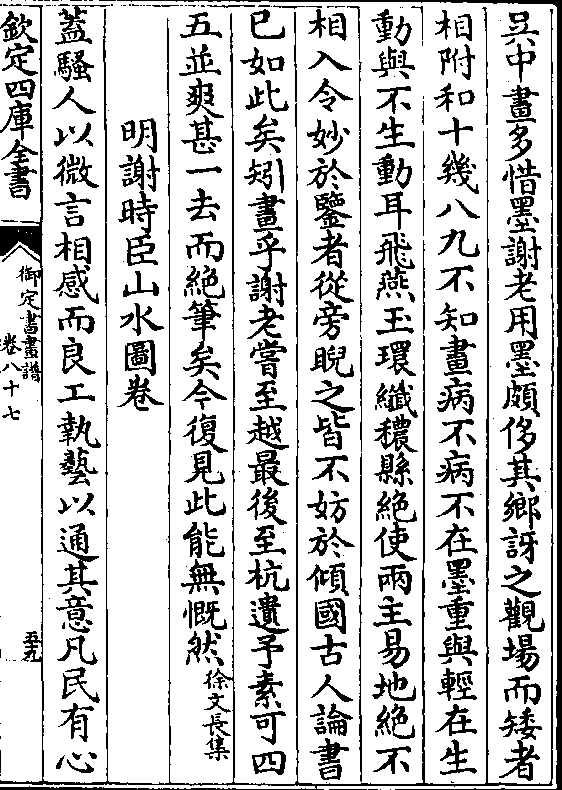 吳中畫多惜墨謝老用墨頗侈其鄉訝之觀場而矮者
相附和十幾八九不知畫病不病不在墨重與輕在生
動與不生動耳飛燕玉環纖穠縣絕使兩主易地絕不
相入令妙於鑒者從旁睨之皆不妨於傾國古人論書
已如此矣矧畫乎謝老嘗至越最後至杭遺予素可四
五並爽甚一去而絕筆矣今復見此能無慨然徐文長集
明謝時臣山水圖卷
蓋騷人以微言相感而良工執藝以通其意凡民有心
欽定四庫全書
御定書畫譜
卷八十七
至九